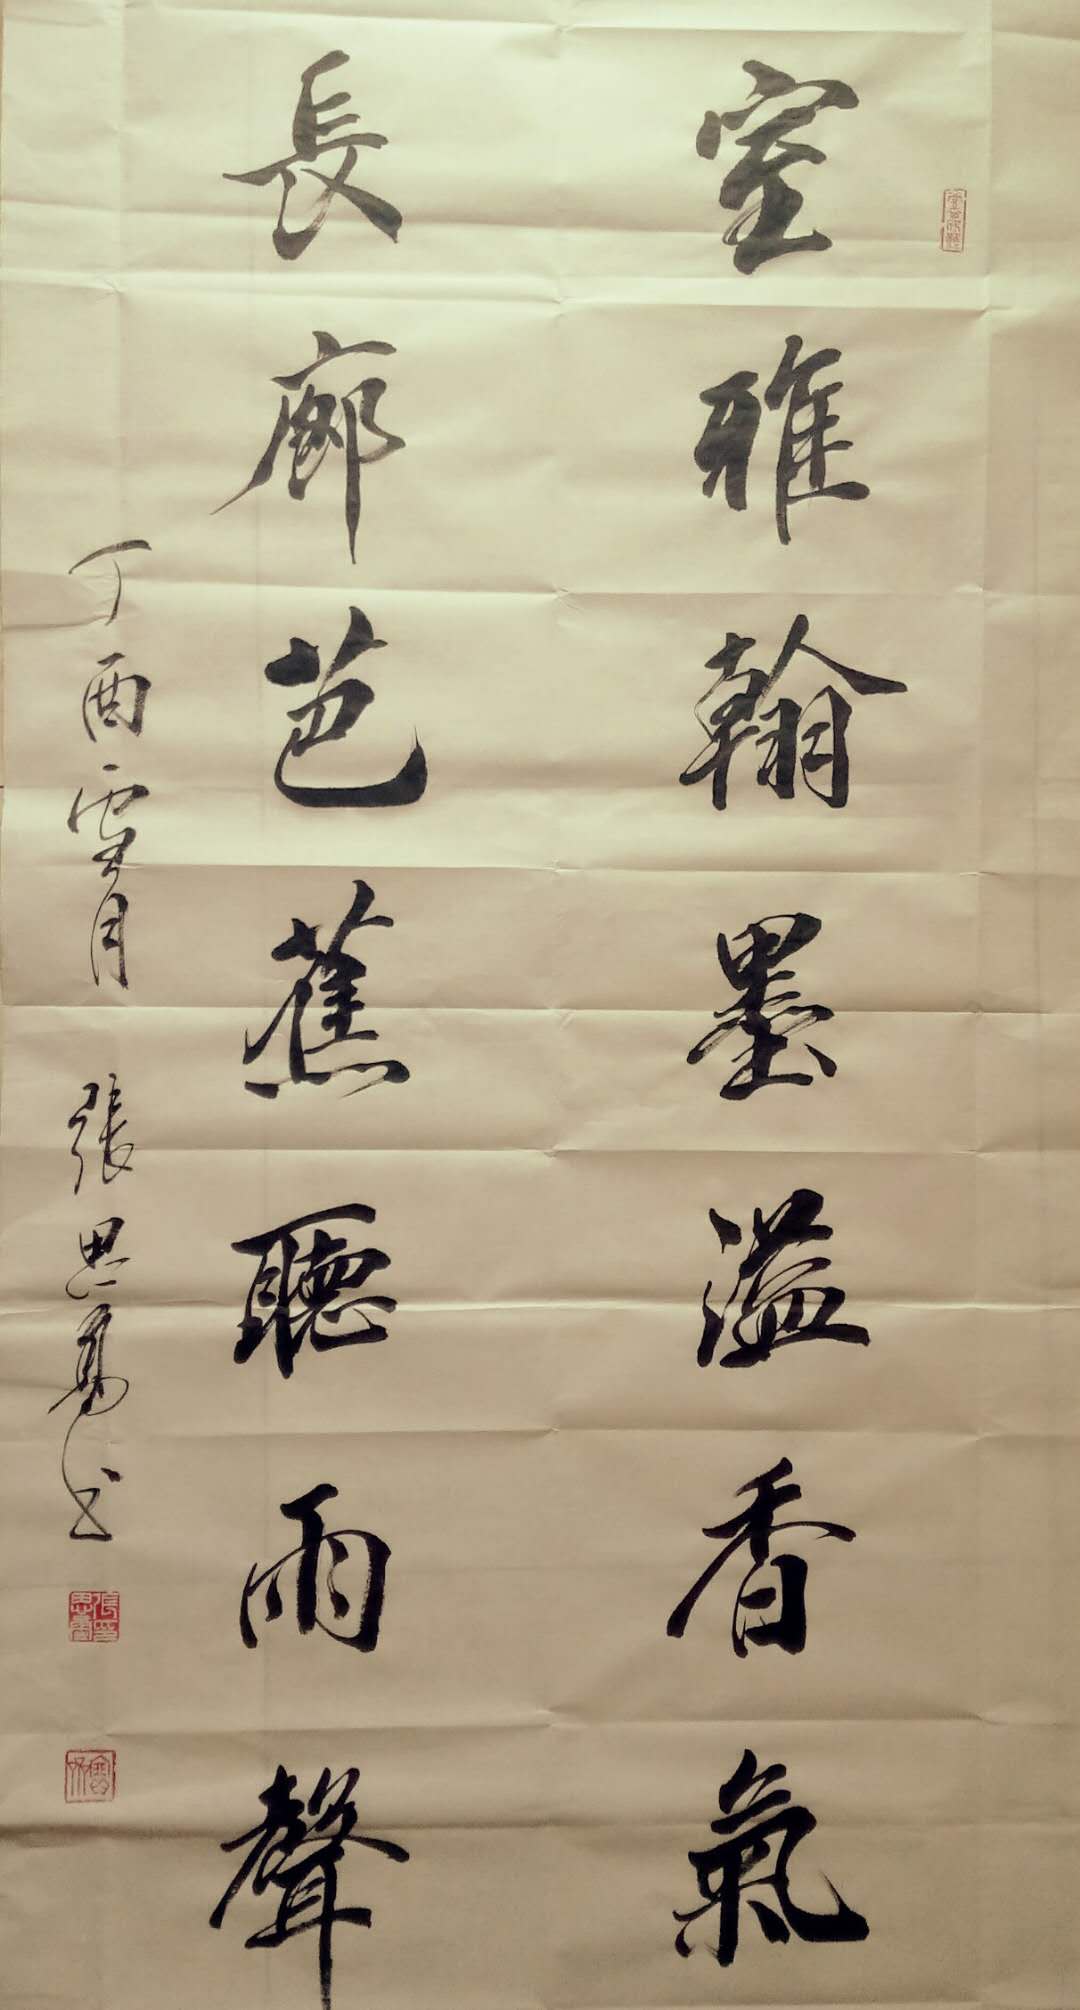 室雅翰墨溢香氣
長廊芭蕉聽雨聲
丁酉雪月 張思勇书